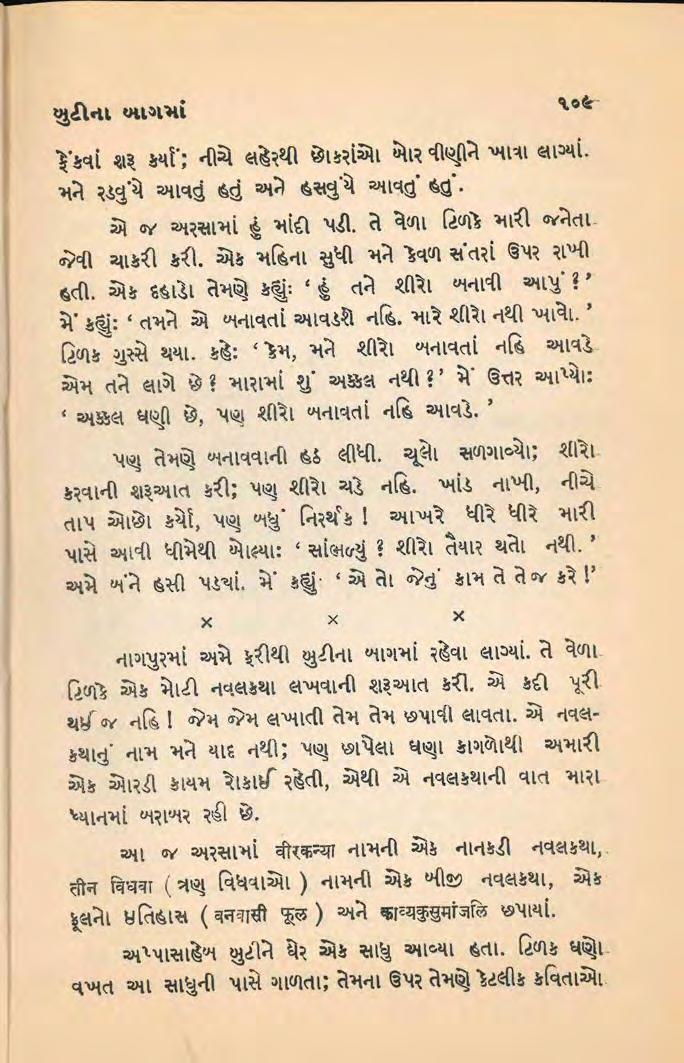 બુટીના બાગમાં ૧૦૯
ફેંકવાં શરૂ કર્યાં; નીચે લહેરથી છોકરાંઓ બોર વીણીને ખાવા લાગ્યાં.
મને રડવુંયે આવતું હતું અને હસવુંયે આવતું હતું.
એ જ અરસામાં હું માંદી પડી. તે વેળા ટિળકે મારી જનેતા
જેવી ચાકરી કરી. એક મહિના સુધી મને કેવળ સંતરાં ઉપર રાખી
હતી. એક દહાડો તેમણે કહ્યુંઃ ‘ હું તને શીરો બનાવી આપું ? ’
મેં કહ્યુંઃ ‘ તમને એ બનાવતાં આવડશે નહિ. મારે શીરો નથી ખાવો. ’
ટિળક ગુસ્સે થયા. કહેઃ ‘ કેમ, મને શીરો બનાવતાં નહિ આવડે
એમ તને લાગે છે ? મારામાં શું અક્કલ નથી ? ’ મેં ઉત્તર આપ્યોઃ
‘ અક્કલ ઘણી છે, પણ શીરો બનાવતાં નહિ આવડે. ’
પણ તેમણે બનાવવાની હઠ લીધી. ચૂલો સળગાવ્યો; શીરો
કરવાની શરૂઆત કરી; પણ શીરો ચડે નહિ. ખાંડ નાખી, નીચે
તાપ ઓછો કર્યો, પણ બધું નિરર્થક ! આખરે ધીરે ધીરે મારી
પાસે આવી ધીમેથી બોલ્યાઃ ‘ સાંભળ્યું ? શીરો તૈયાર થતો નથી. ’
અમે બંને હસી પડ્યાં. મેં કહ્યું· ‘ એ તો જેનું કામ તે તેજ કરે !’
× × ×
નાગપુરમાં અમે ફરીથી બુટીના બાગમાં રહેવા લાગ્યાં. તે વેળા
ટિળકે એક મોટી નવલકથા લખવાની શરૂઆત કરી. એ કદી પૂરી
થઈ જ નહિ ! જેમ જેમ લખાતી તેમ તેમ છપાવી લાવતા. એ નવલ-
કથાનું નામ મને યાદ નથી; પણ છાપેલા ઘણા કાગળોથી અમારી
એક ઓરડી કાયમ રોકાઈ રહેતી, એથી એ નવલકથાની વાત મારા
ધ્યાનમાં બરાબર રહી છે.
આ જ અરસામાં वीरकन्या નામની એક નાનકડી નવલકથા,
तीन विधवा ( ત્રણ વિધવાઓ ) નામની એક બીજી નવલકથા, એક
ફૂલનો ઇતિહાસ ( वनवासी फूल ) અને काव्यकुसुमांजलि છપાયાં.
અપ્પાસાહેબ બુટીને ઘેર એક સાધુ આવ્યા હતા. ટિળક ઘણો
વખત આ સાધુની પાસે ગાળતા; તેમના ઉપર તેમણે કેટલીક કવિતાઓ